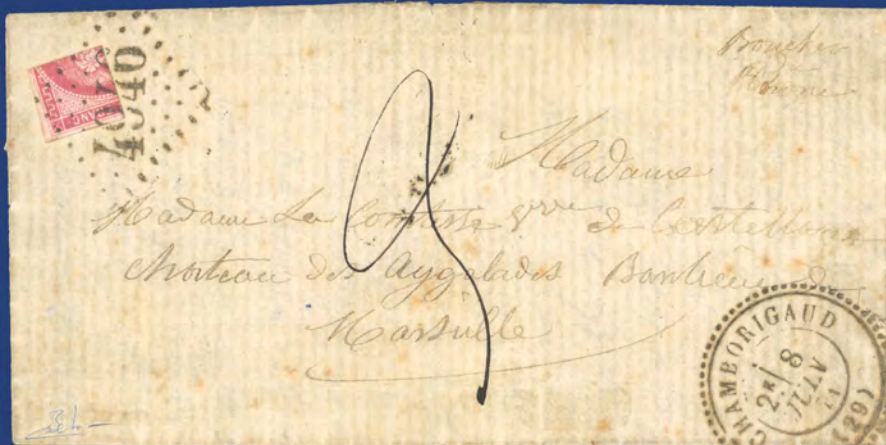 FRANC
4340
Bouches
Rhône
Madame
Madame La Comtesse de Castellane
Chateau des Aygalades Banlieue de
Marseille
CHAMBORIGAUD
2E
8
JUIN
71
(29)